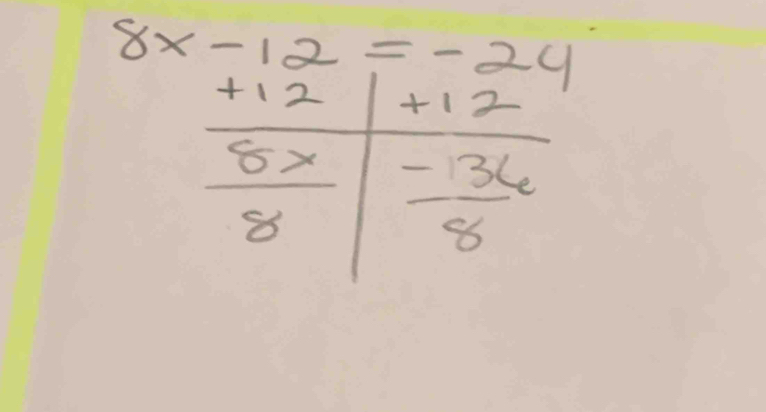 8x - 12 = - 24
+12 | +12
8x | - 36
8 | 8